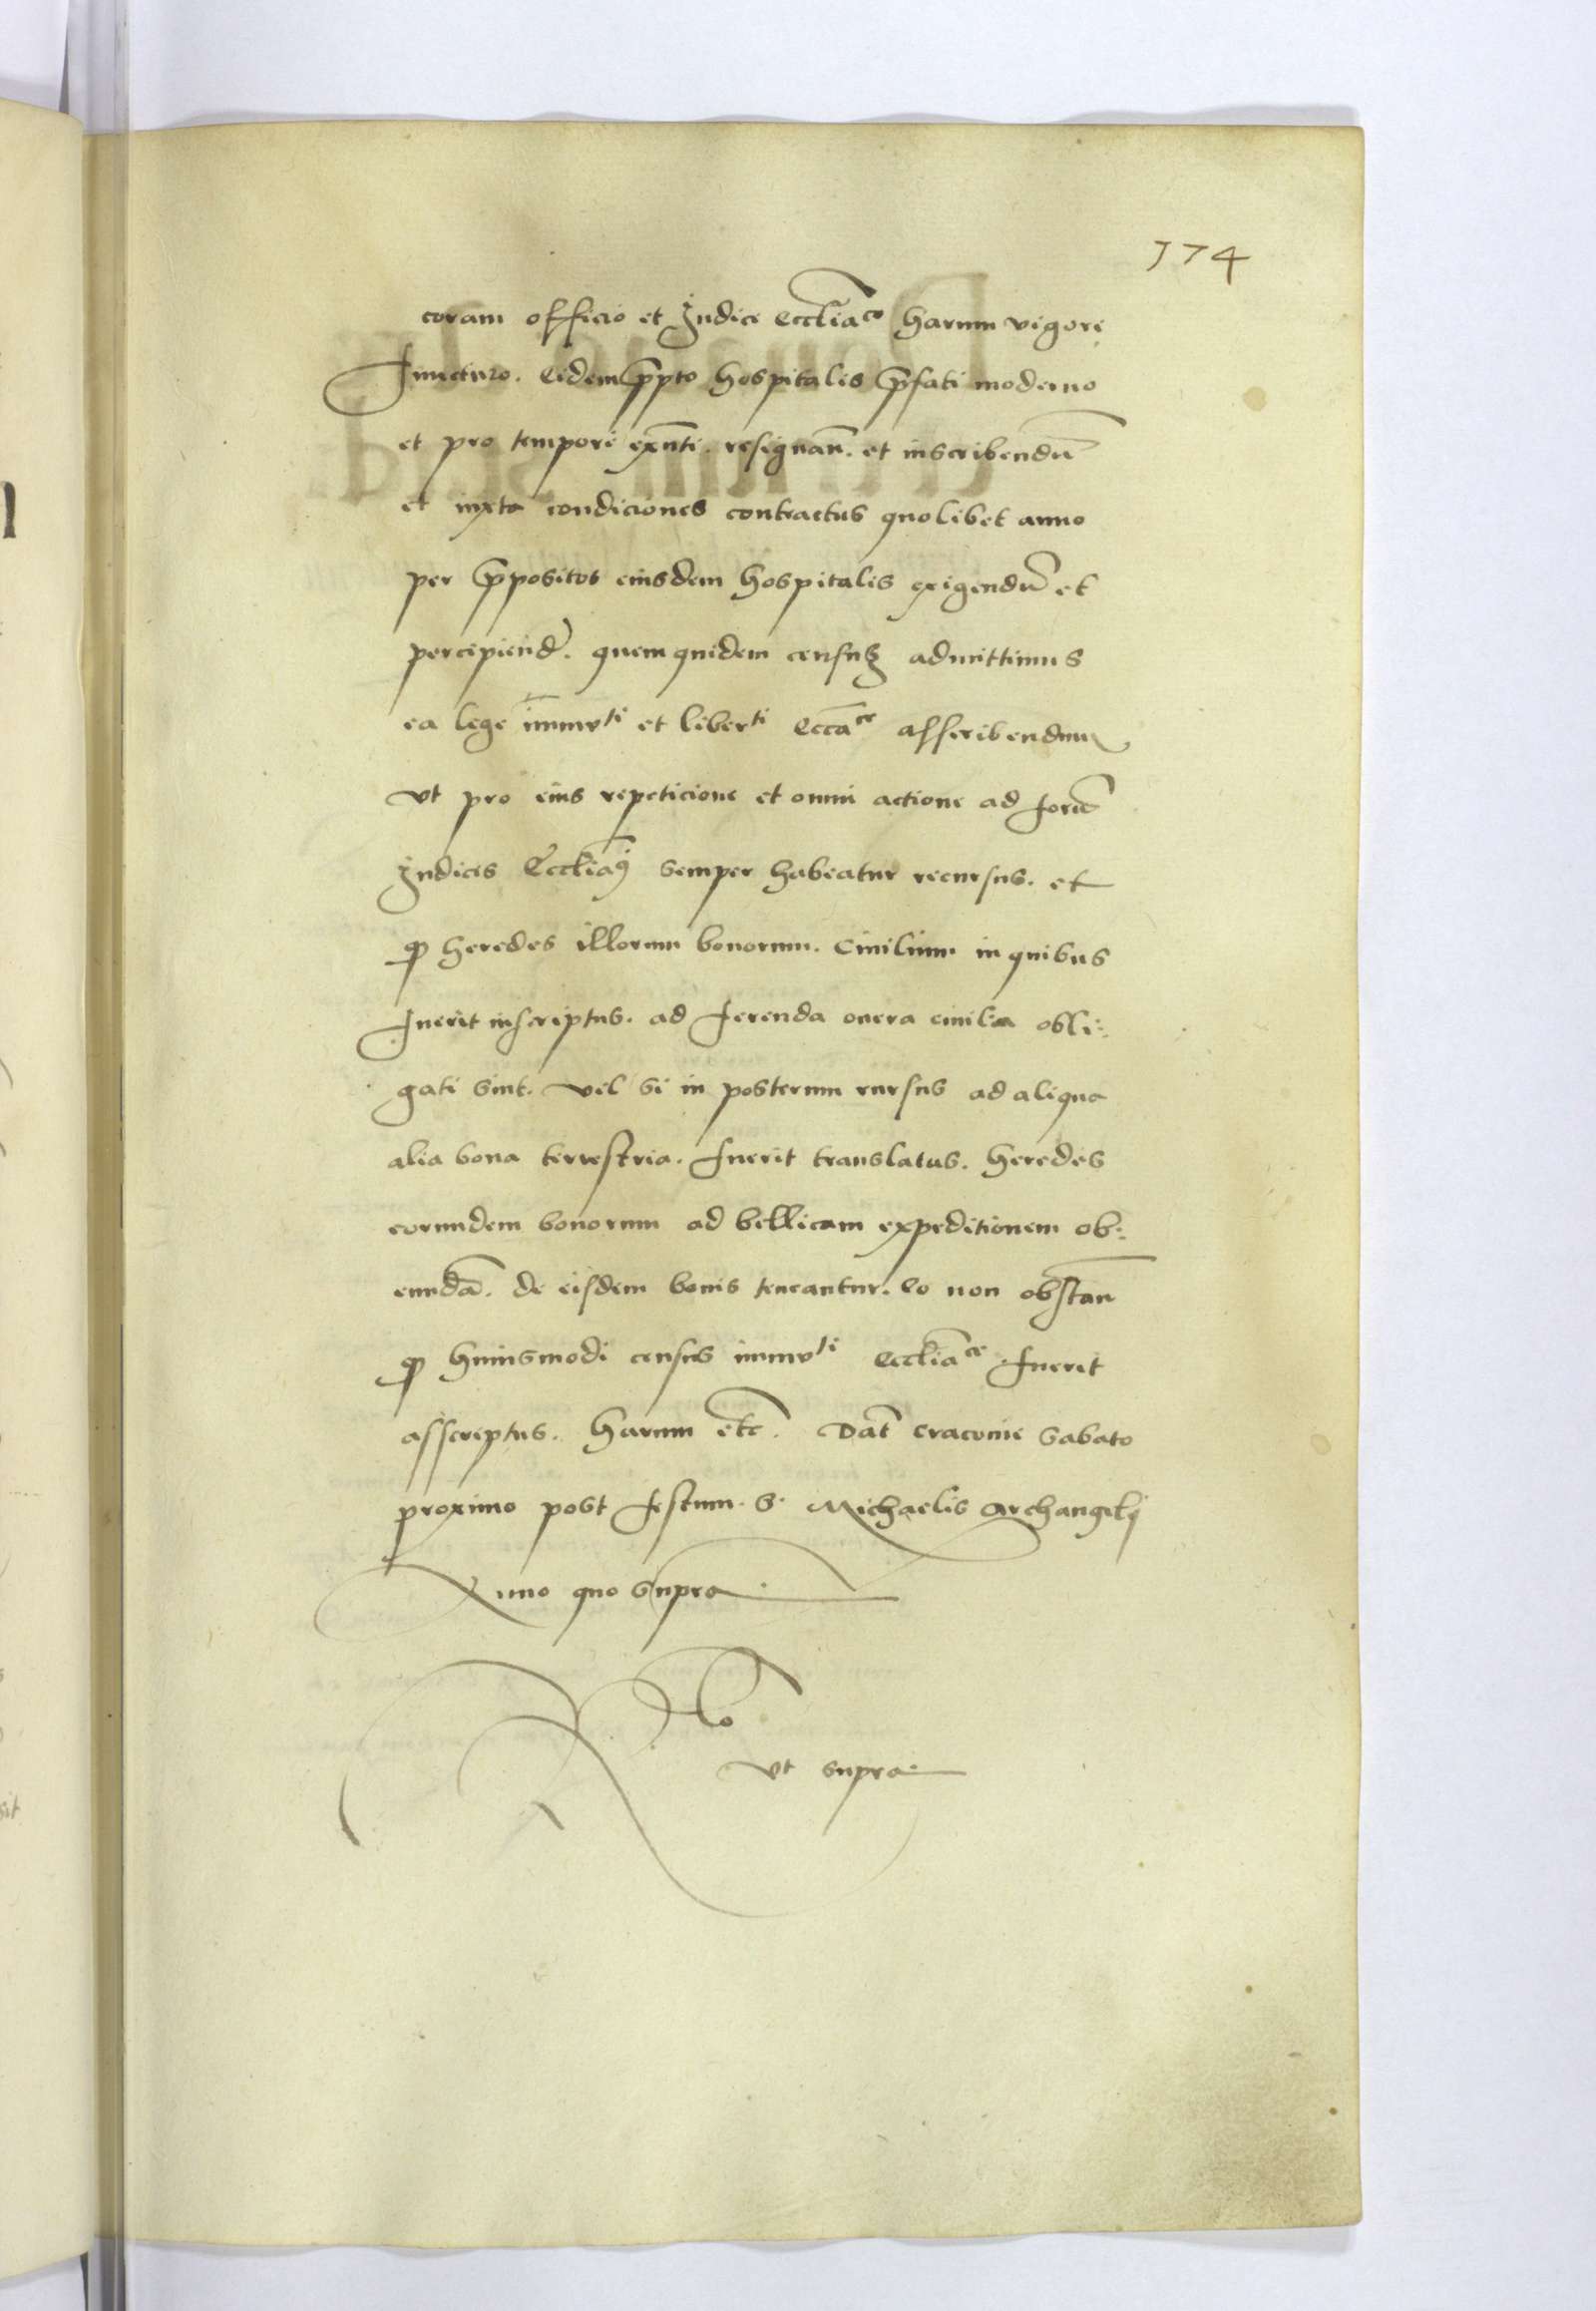 174
coram officio et Judice Eccl̄iaco harum vigore
functuro. Eidem p̄p̄to hospitalis p̄fati moderno
et pro tempore exn̄ti. resignan̄. et inscribendū
et iuxta condiciones contractus quolibet anno
per p̄positos eiusdem hospitalis exigendū et
percipiend̄. quem quidem censuȝ admittimus
ea lege im̄mvti et liberti Ecc̄ace asscribendum
vt pro eius repeticione et omni actione ad forū
Judicis Eccl̄iaci semper habeatur recursus. et
ꝙ heredes illorum bonorum. Ciuilium in quibus
fuerit inscriptus. ad ferenda onera ciuilia obli:
gati sint. vel si in posterum rursus ad aliqua
alia bona terrestria. fuerit translatus. heredes
eorundem bonorum ad bellicam expeditionem ob:
eundā. de eisdem bonis teneantur. Eo non obstan̄
ꝙ huiusmodi census immvti Eccl̄iace fuerit
asscriptus. Harum etc̄. Dat̄ Cracouie Sabato
proximo post festum. S. Michaelis Archangelj
Anno quo supra
R̄lo
vt supra